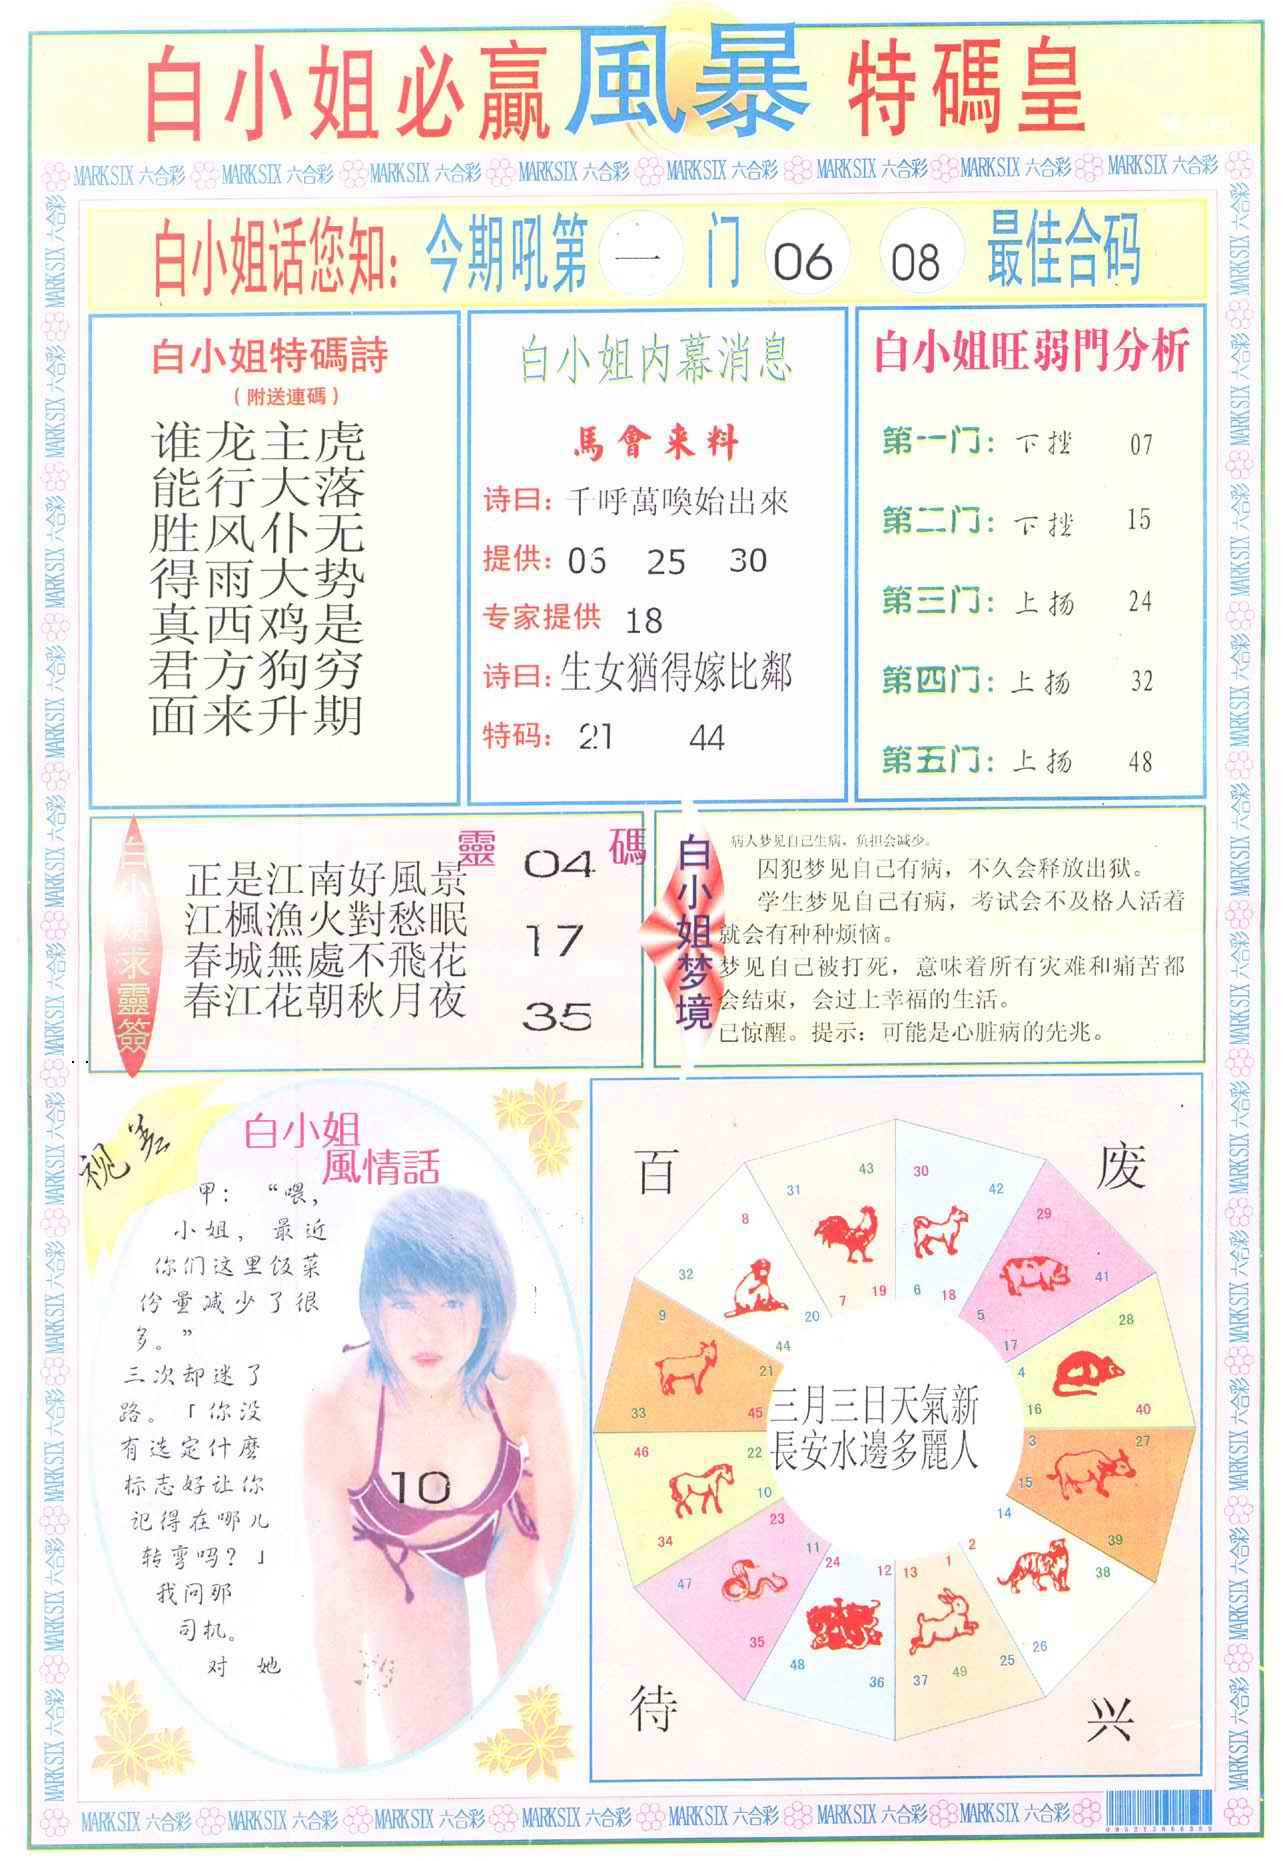 白小姐必贏風暴特碼皇
MARK SIX 六合彩 MARK SIX 六合彩 MARK SIX 六合彩 MARK SIX 六合彩 MARK SIX 六合彩 MARK SIX 六合彩 MARK SIX 六合彩 MARK SIX 六合彩
白小姐话您知：今期吼第 一 门 06 08 最佳合码
白小姐特碼詩
（附送連碼）
谁龙主虎
能行大落
胜风仆无
得雨大势
真西鸡是
君方狗穷
面来升期
白小姐内幕消息
馬會来料
诗曰：千呼萬喚始出來
提供：06 25 30
专家提供 18
诗曰：生女猶得嫁比鄰
特码：21 44
白小姐旺弱門分析
第一门：下挫 07
第二门：下挫 15
第三门：上扬 24
第四门：上扬 32
第五门：上扬 48
白小姐求靈簽
靈碼
正是江南好風景
江楓漁火對愁眠
春城無處不飛花
春江花朝秋月夜
04
17
35
白小姐梦境
病人梦见自己生病，负担会减少。
囚犯梦见自己有病，不久会释放出狱。
学生梦见自己有病，考试会不及格人活着
就会有种种烦恼。
梦见自己被打死，意味着所有灾难和痛苦都
会结束，会过上幸福的生活。
已惊醒。提示：可能是心脏病的先兆。
白小姐
風情話
甲：“喂，
小姐，最近
你们这里饭菜
份量减少了很
多。”
三次却迷了
路。「你没
有选定什麽
标志好让你
记得在哪儿
转弯吗？」
我问那
司机。
对 她
10
百
废
待
兴
三月三日天氣新
長安水邊多麗人
7 19 31 43
6 18 30 42
5 17 29 41
4 16 28 40
3 15 27 39
2 14 26 38
1 13 25 37 49
12 24 36 48
11 23 35 47
10 22 34 46
9 21 33 45
8 20 32 44
MARK SIX 六合彩 MARK SIX 六合彩 MARK SIX 六合彩 MARK SIX 六合彩 MARK SIX 六合彩 MARK SIX 六合彩 MARK SIX 六合彩